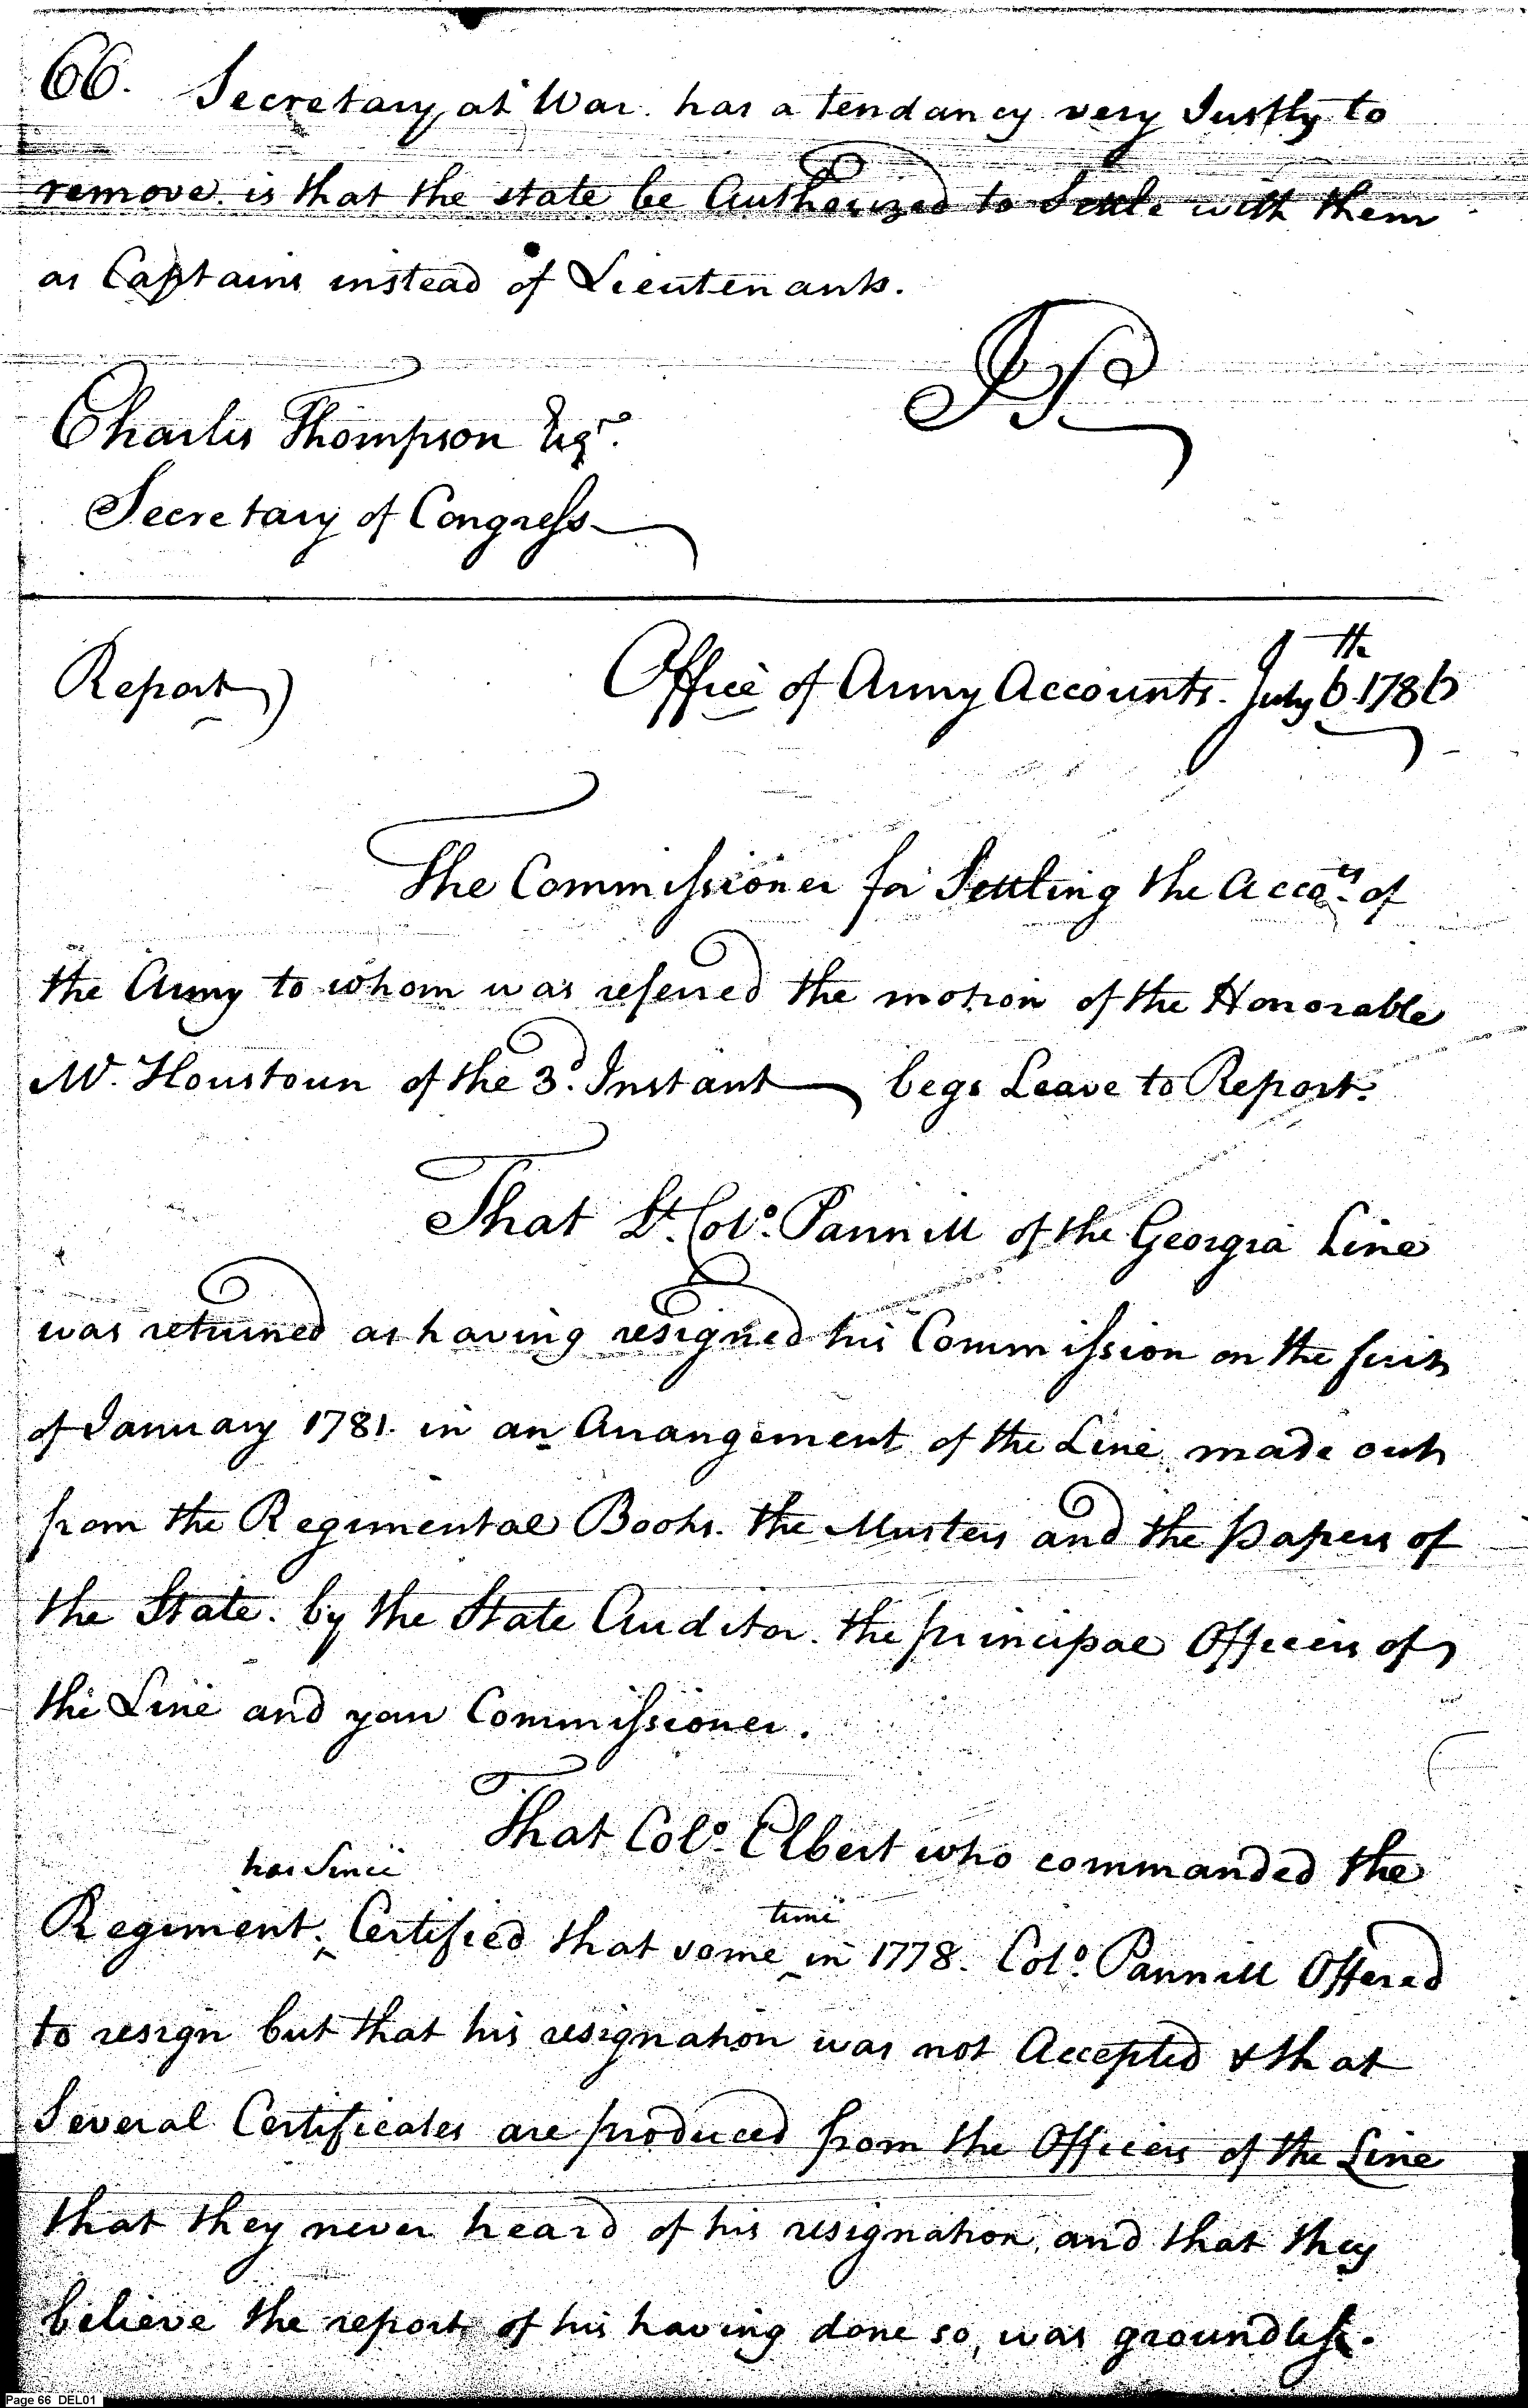 66. Secretary at War. has a tendancy very Justly to
remove. is that the state be Authorized to Settle with them
as Captains instead of Lieutenants.
JP
Charles Thompson Esqr.
Secretary of Congress
Report) Office of Army Accounts. July 6th 1786
The Commissioner for Settling the Accots. of
the Army to whom was referred the motion of the Honorable
Mr. Houstoun of the 3d. Instant begs Leave to Report.
That Lt. Colo. Pannill of the Georgia Line
was returned as having resigned his Commission on the first
of January 1781. in an Arrangement of the Line made out
from the Regimental Books. the Musters and the papers of
the State. by the State Auditor. the principal Officers of
the Line and your Commissioner.
That Colo. Elbert who commanded the
has Since
Regiment. ^ Certified that some ^ in 1778. Colo. Pannill Offered
time
to resign but that his resignation was not Accepted & that
Several Certificates are produced from the Officers of the Line
that they never heard of his resignation, and that they
believe the report of his having done so, was groundless.
Page 66 DEL01